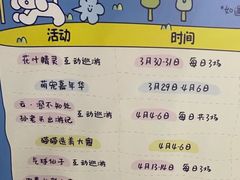 活动 时间
花叶精灵 互动巡游 3月30-31日 每日3场
萌宠嘉年华 3月29日-4月6日
云·深不知处
孙老爷出游记 互动巡游 4月4-6日 每日共3场
猫猫选美大赛 4月4-6日
花球仙子 互动巡游 4月13-14日 每日3场